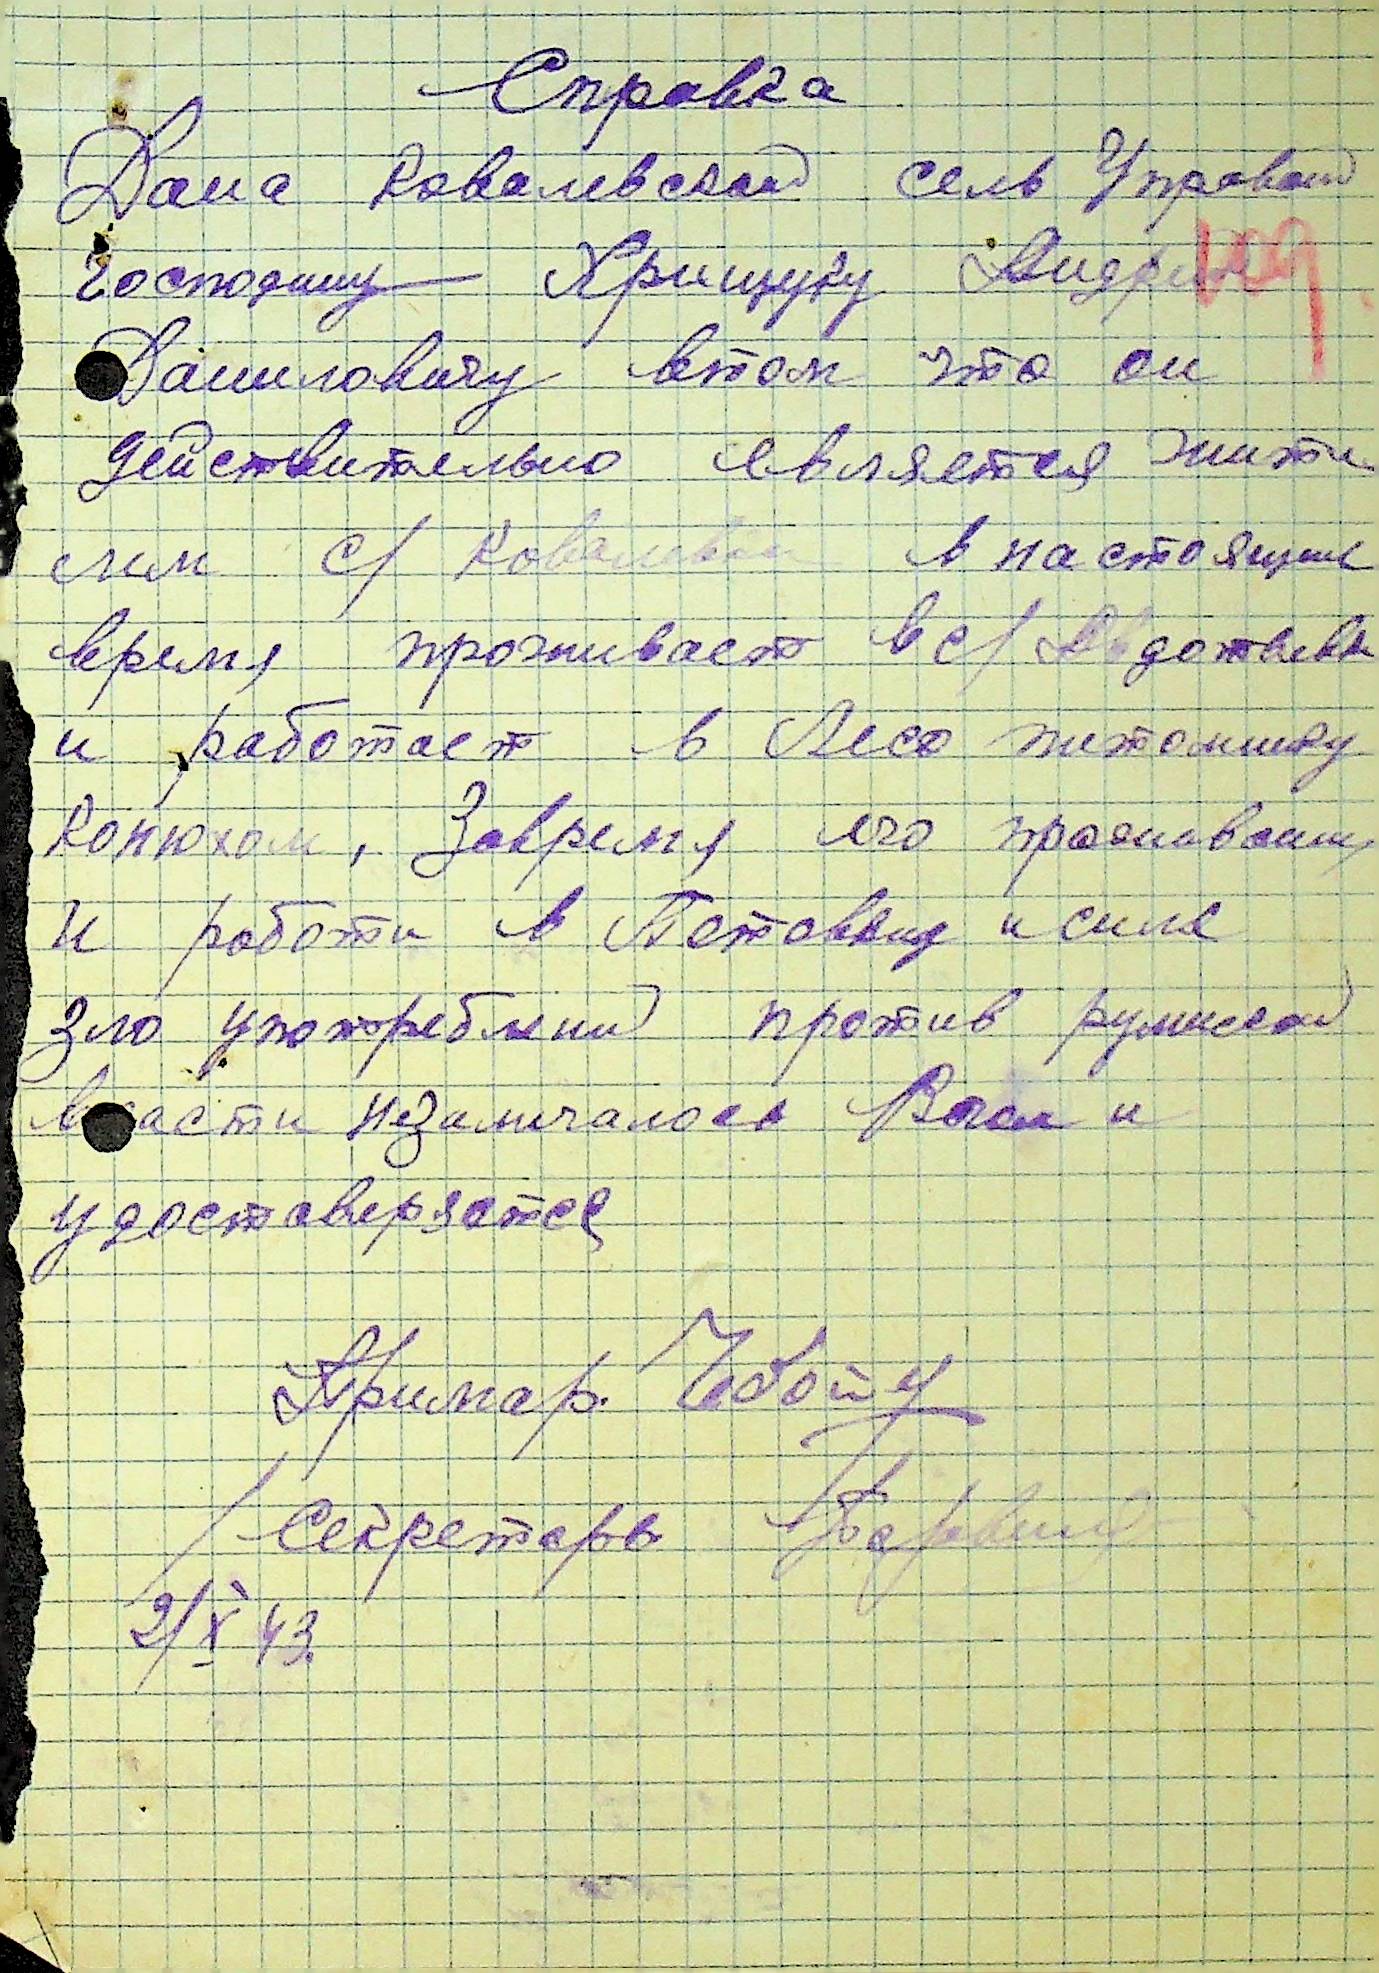 Справка
Дана Ковалевской сель Управой
господину Хрищуку Андрею
109
Даниловичу втом что он
действительно евляется жите
лем с/ Ковалевки в настоящие
время проживает в с/ Авдотевке
и работает в Лесо питомнику
конюхом, Завремя его проживания
и работи в
зло употреблений против румнской
власти незамичалось Вчом и
удостоверяется
Примар. Чебота
Секретарь
2/X 43.